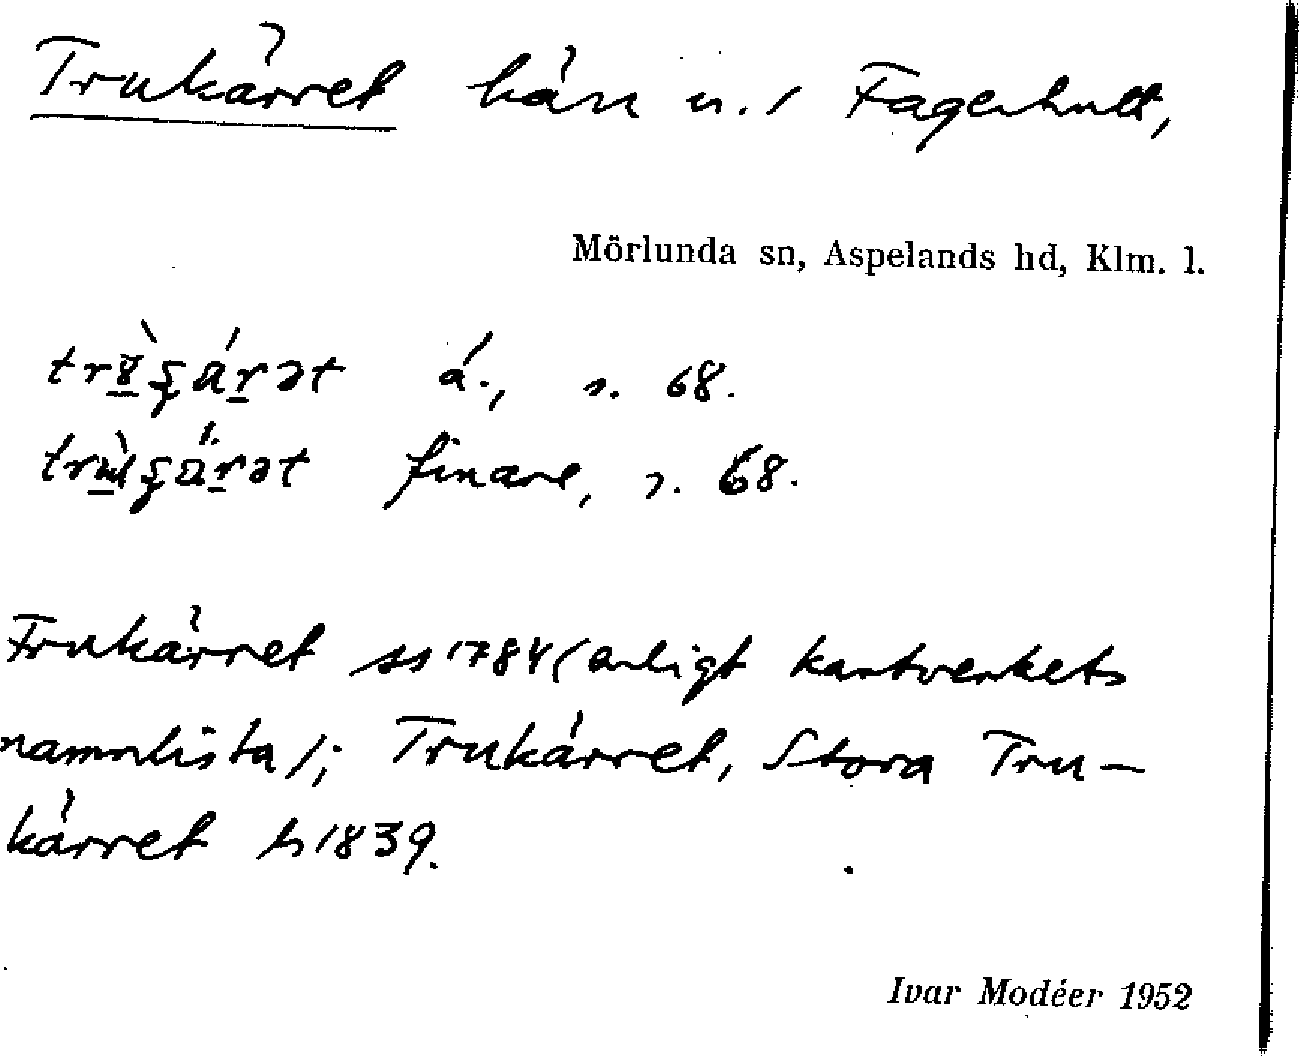 Trukärret kärr u. / Fagerhult,
Mörlunda sn, Aspelands hd, Klm. l.
ä., s. 68.
finare, s. 68.
Frukärret ss 1784 (enligt kartverkets
namnlista); Trukärret, Stora Tru-
kärret h 1839.
Ivar Modéer 1952